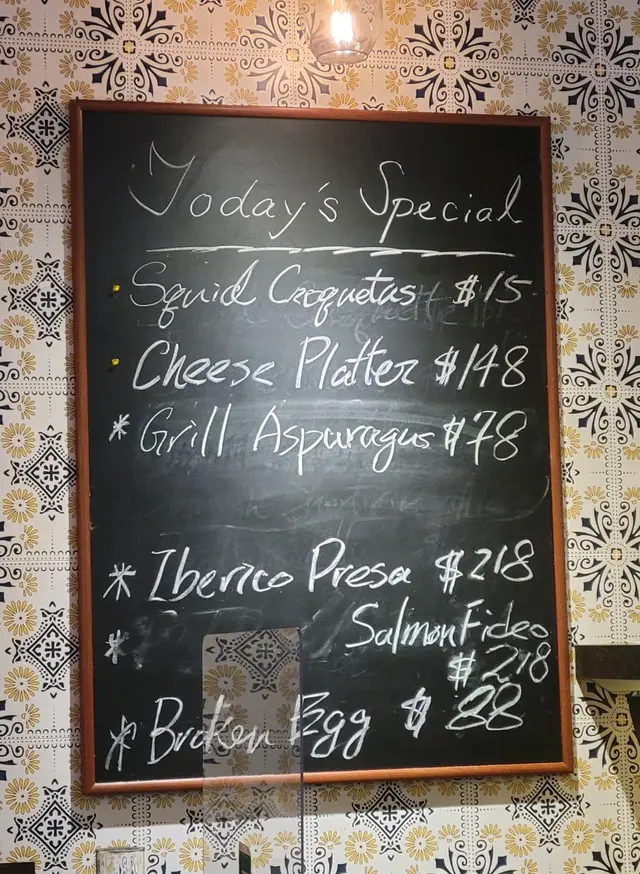 Today's Special
Squid Croquetas $15
Cheese Platter $148
* Grill Asparagus $78
* Iberico Presa $218
* Salmon Fideo
$218
* Broken Egg $88